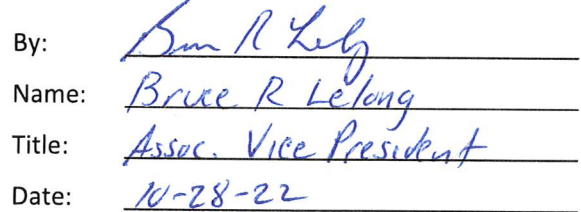 By: Bruce R Lelong
Name: Bruce R Lelong
Title: Assoc. Vice President
Date: 10-28-22